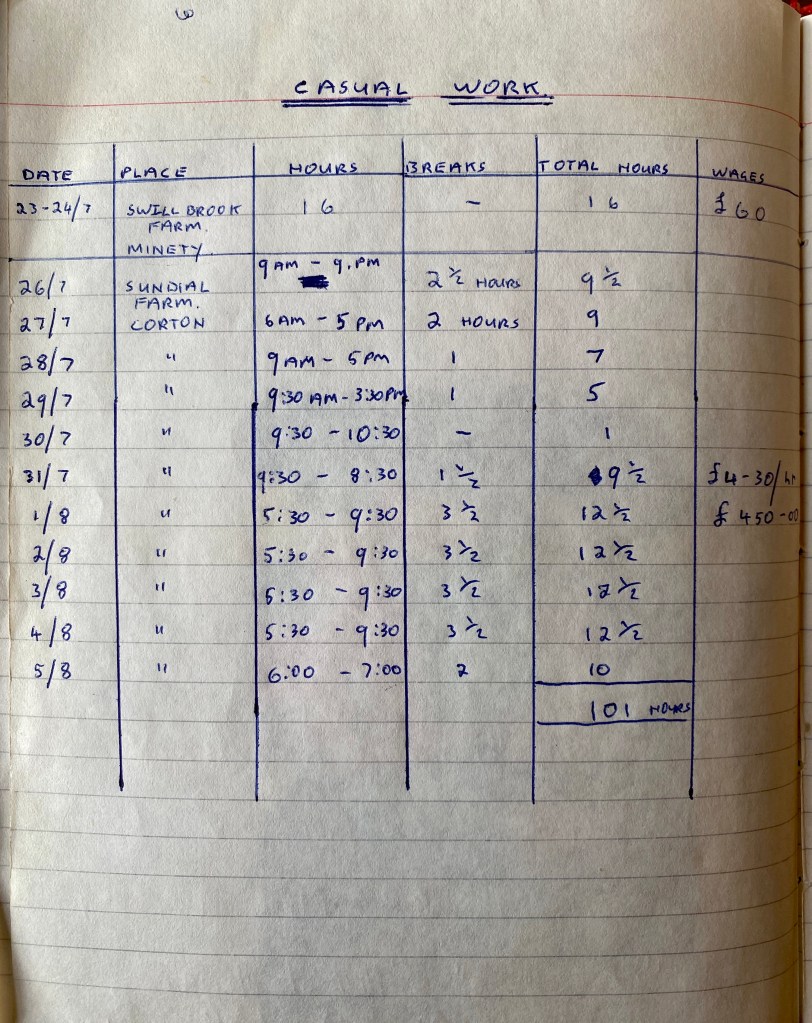 6
CASUAL WORK.
DATE PLACE HOURS BREAKS TOTAL HOURS WAGES
23-24/7 SWILLBROOK 16 – 16 £60
FARM.
MINETY.
26/7 SUNDIAL 9AM – 9.PM 2 1/2 HOURS 9 1/2
FARM.
27/7 CORTON 6AM – 5PM 2 HOURS 9
28/7 " 9AM – 5PM 1 7
29/7 " 9:30AM – 3:30PM 1 5
30/7 " 9:30 – 10:30 – 1
31/7 " 9:30 – 8:30 1 1/2 9 1/2 £4-30/hr
1/8 " 5:30 – 9:30 3 1/2 12 1/2 £450-00
2/8 " 5:30 – 9:30 3 1/2 12 1/2
3/8 " 5:30 – 9:30 3 1/2 12 1/2
4/8 " 5:30 – 9:30 3 1/2 12 1/2
5/8 " 6:00 – 7:00 2 10
101 HOURS